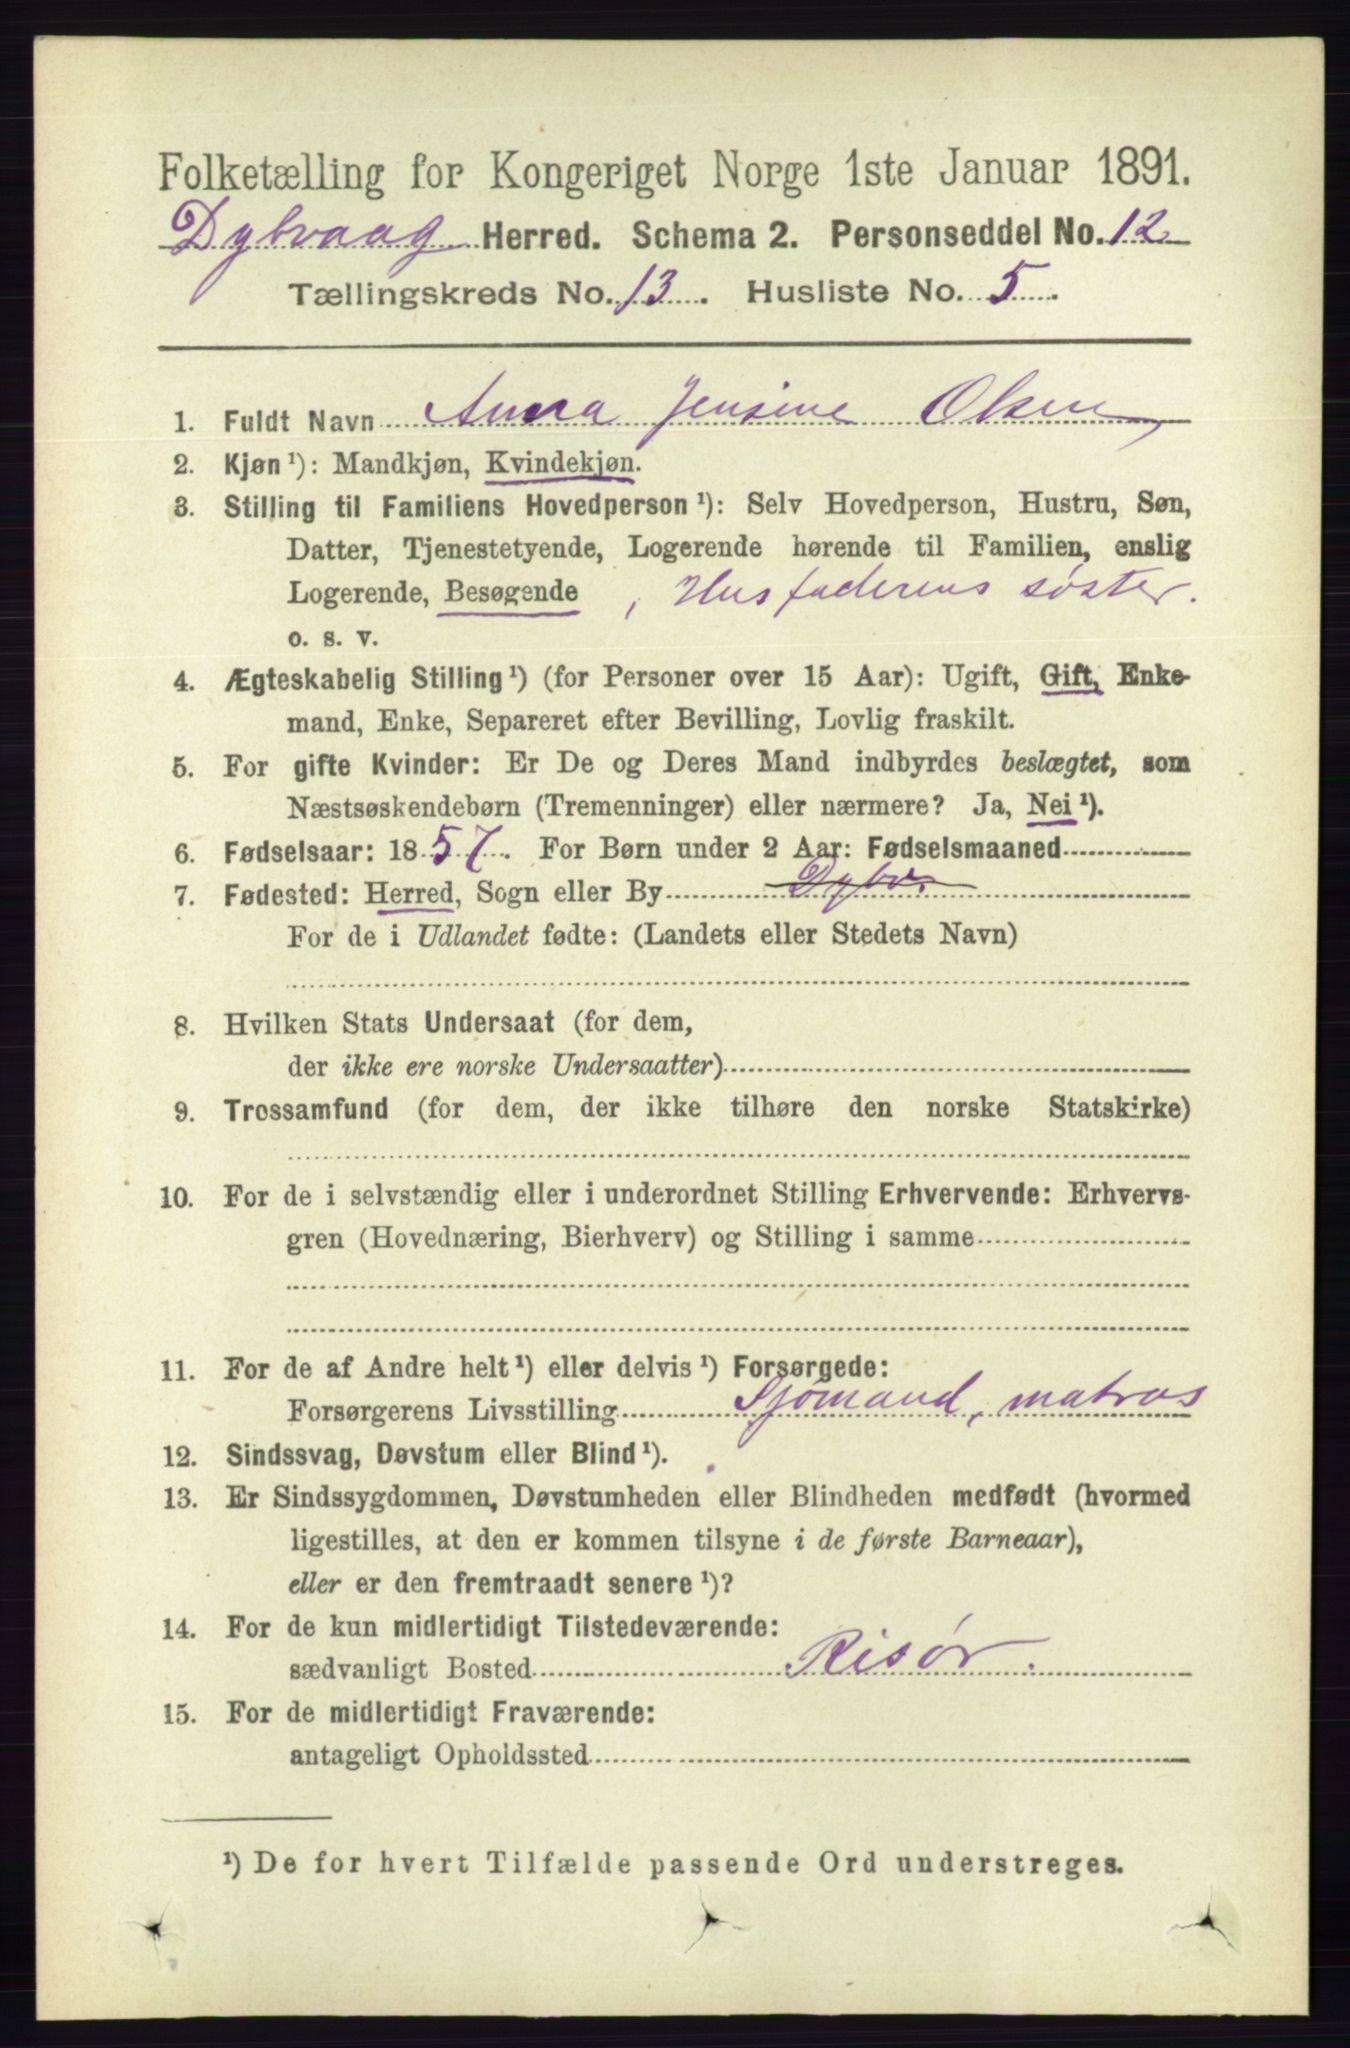 Folketælling for Kongeriget Norge 1ste Januar 1891.
Dybvaag Herred. Schema 2. Personseddel No. 12
Tællingskreds No. 13. Husliste No. 5.
1. Fuldt Navn Anna Jensine Olsen
2. Kjøn ¹): Mandkjøn, Kvindekjøn.
3. Stilling til Familiens Hovedperson ¹): Selv Hovedperson, Hustru, Søn,
Datter, Tjenestetyende, Logerende hørende til Familien, enslig
Logerende, Besøgende, Husfaderens søster.
o. s. v.
4. Ægteskabelig Stilling ¹) (for Personer over 15 Aar): Ugift, Gift, Enke-
mand, Enke, Separeret efter Bevilling, Lovlig fraskilt.
5. For gifte Kvinder: Er De og Deres Mand indbyrdes beslægtet, som
Næstsøskendebørn (Tremenninger) eller nærmere? Ja, Nei ¹).
6. Fødselsaar: 1857. For Børn under 2 Aar: Fødselsmaaned
7. Fødested: Herred, Sogn eller By Dybv.
For de i Udlandet fødte: (Landets eller Stedets Navn)
8. Hvilken Stats Undersaat (for dem,
der ikke ere norske Undersaatter)
9. Trossamfund (for dem, der ikke tilhøre den norske Statskirke)
10. For de i selvstændig eller i underordnet Stilling Erhvervende: Erhvervs-
gren (Hovednæring, Bierhverv) og Stilling i samme
11. For de af Andre helt ¹) eller delvis ¹) Forsørgede:
Forsørgerens Livsstilling Sjømand, matros
12. Sindssvag, Døvstum eller Blind ¹).
13. Er Sindssygdommen, Døvstumheden eller Blindheden medfødt (hvormed
ligestilles, at den er kommen tilsyne i de første Barneaar),
eller er den fremtraadt senere ¹)?
14. For de kun midlertidigt Tilstedeværende:
sædvanligt Bosted Risør.
15. For de midlertidigt Fraværende:
antageligt Opholdssted
¹) De for hvert Tilfælde passende Ord understreges.